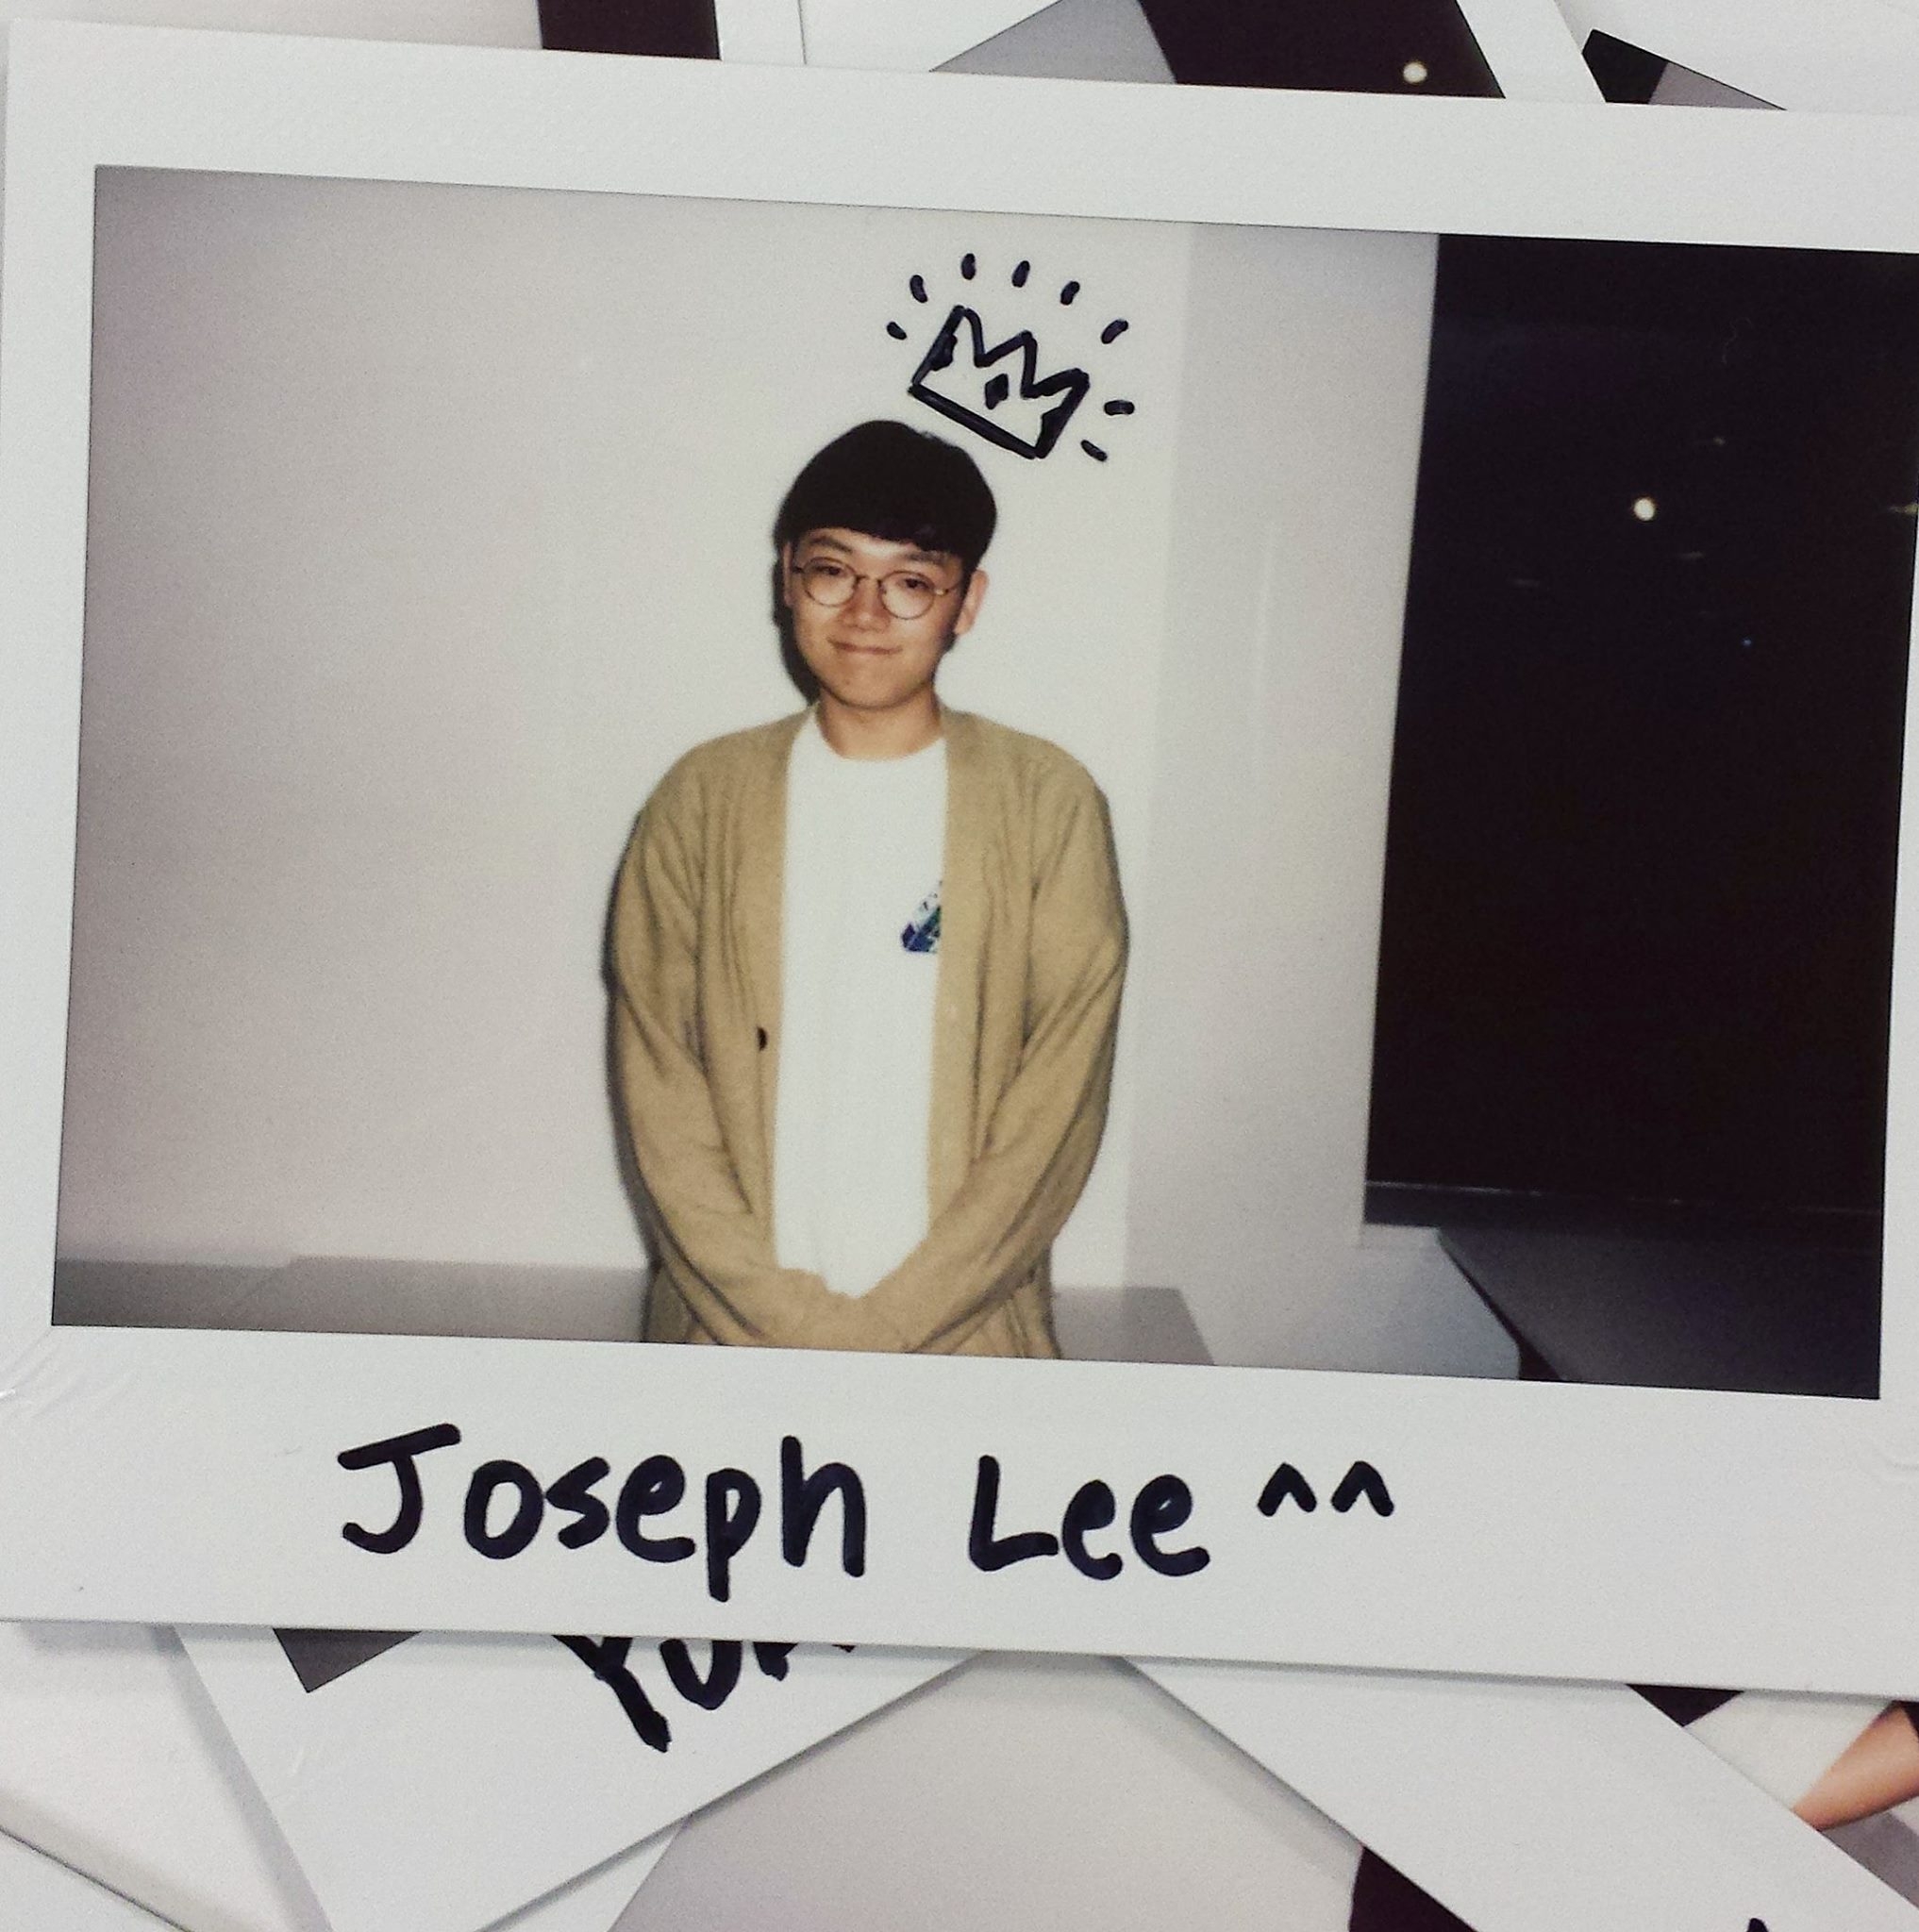 Joseph Lee ^^